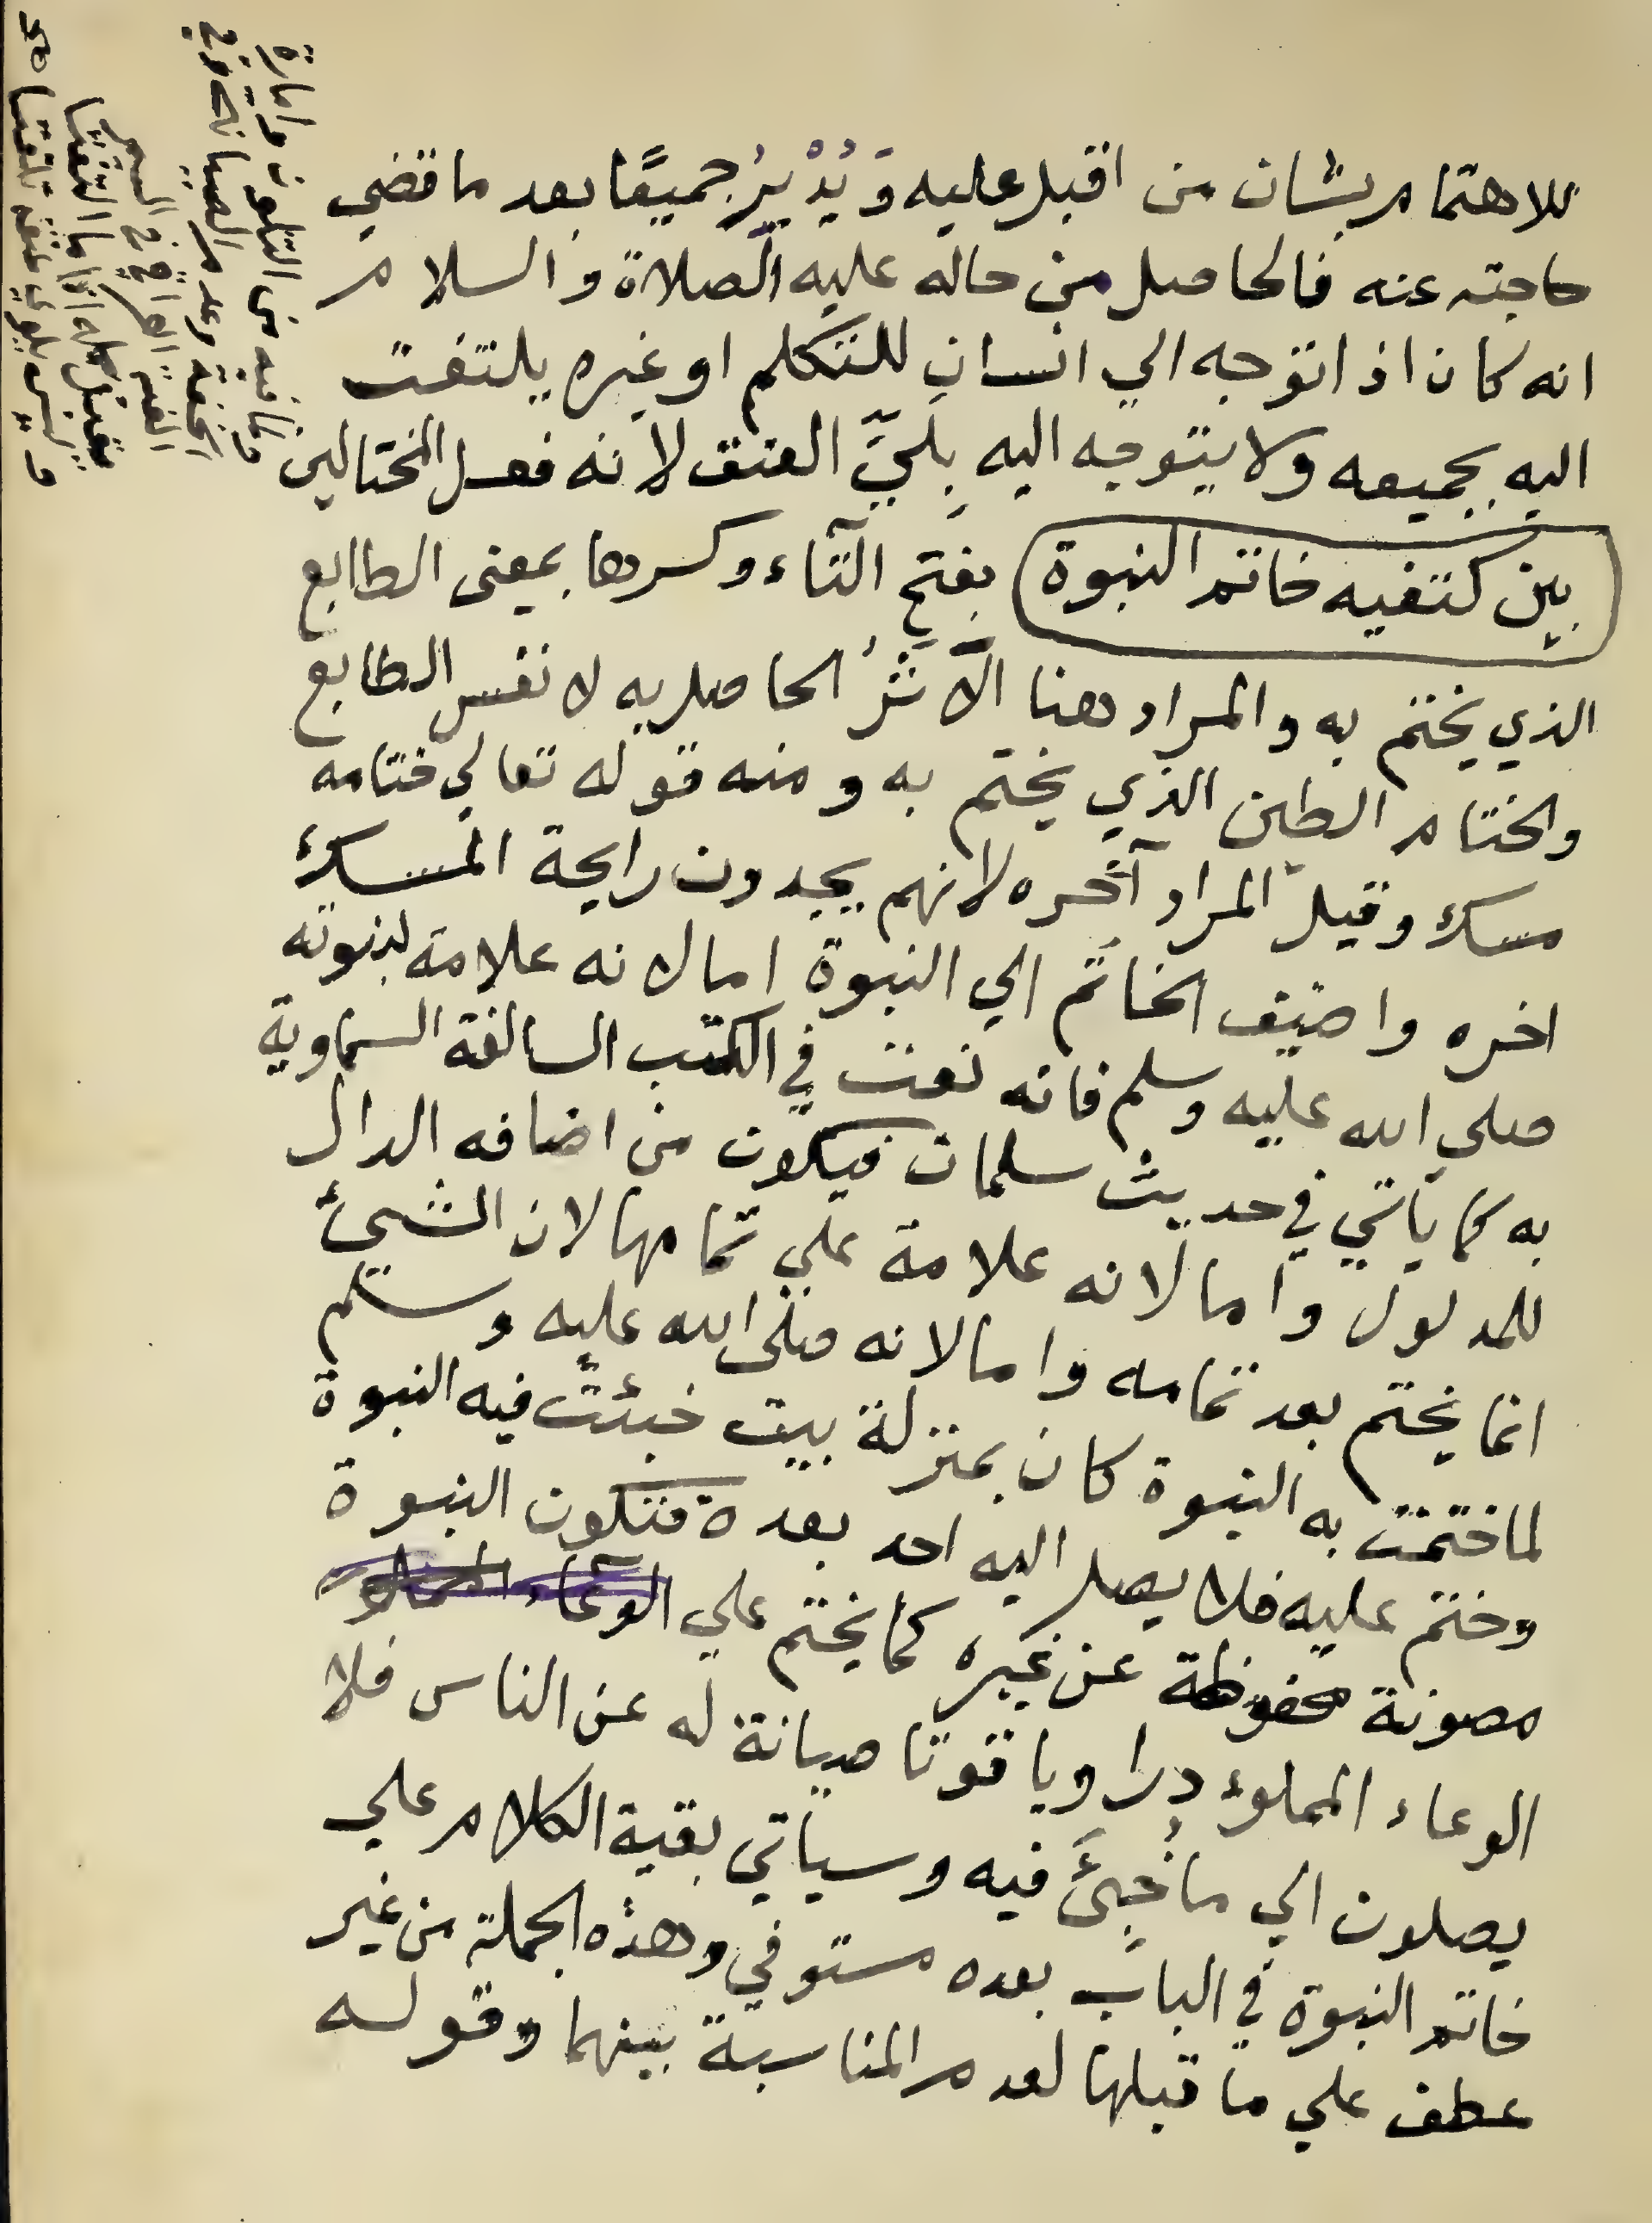 للاهتمام بشان من اقبل عليه وَيُدْبِرُ جميعًا بعد ما قضي
حاجته عنه فالحاصل من حاله عليه الصلاة والسلام
انه كان اذا توجه الي انسان للتكلم او غيره يلتفت
اليه بجميعه ولا يتوجه اليه بِلَيِّ العنق لانه فعل المختالين
بين كتفيه خاتم النبوة بفتح التاء وكسرها بمعنى الطابع
الذي يختم به والمراد هنا الاَثَرُ الحاصل به لا نفس الطابع
والختام الطين الذي يختم به ومنه قوله تعالي ختامه
مسك وقيل المراد آخره لانهم يجدون رايحة المسك
اخره واضيف الخاتم الي النبوة اما لانه علامة لنبوته
صلي الله عليه وسلم فانه نعت في الكتب السالفة السماوية
به كما ياتي في حديث سلمان فيكون من اضافه الدال
للمدلول واما لانه علامة علي تمامها لان الشيئ
انما يختم بعد تمامه واما لانه صلى الله عليه وسلم
لما ختمت به النبوة كان بمنزلة بيت خبئت فيه النبوة
وختم عليه فلا يصل اليه احد بعده فتكون النبوة
مصونة محفوظة عن غيره كما يختم علي الوعاء
الوعاء المملوء درا وياقوتا صيانة له عن الناس فلا
يصلون الي ما خُبِئَ فيه وسياتي بقية الكلام علي
خاتم النبوة في الباب بعده مستوفي وهذه الجملة من غير
عطف علي ما قبلها لعدم المناسبة بينهما وقوله